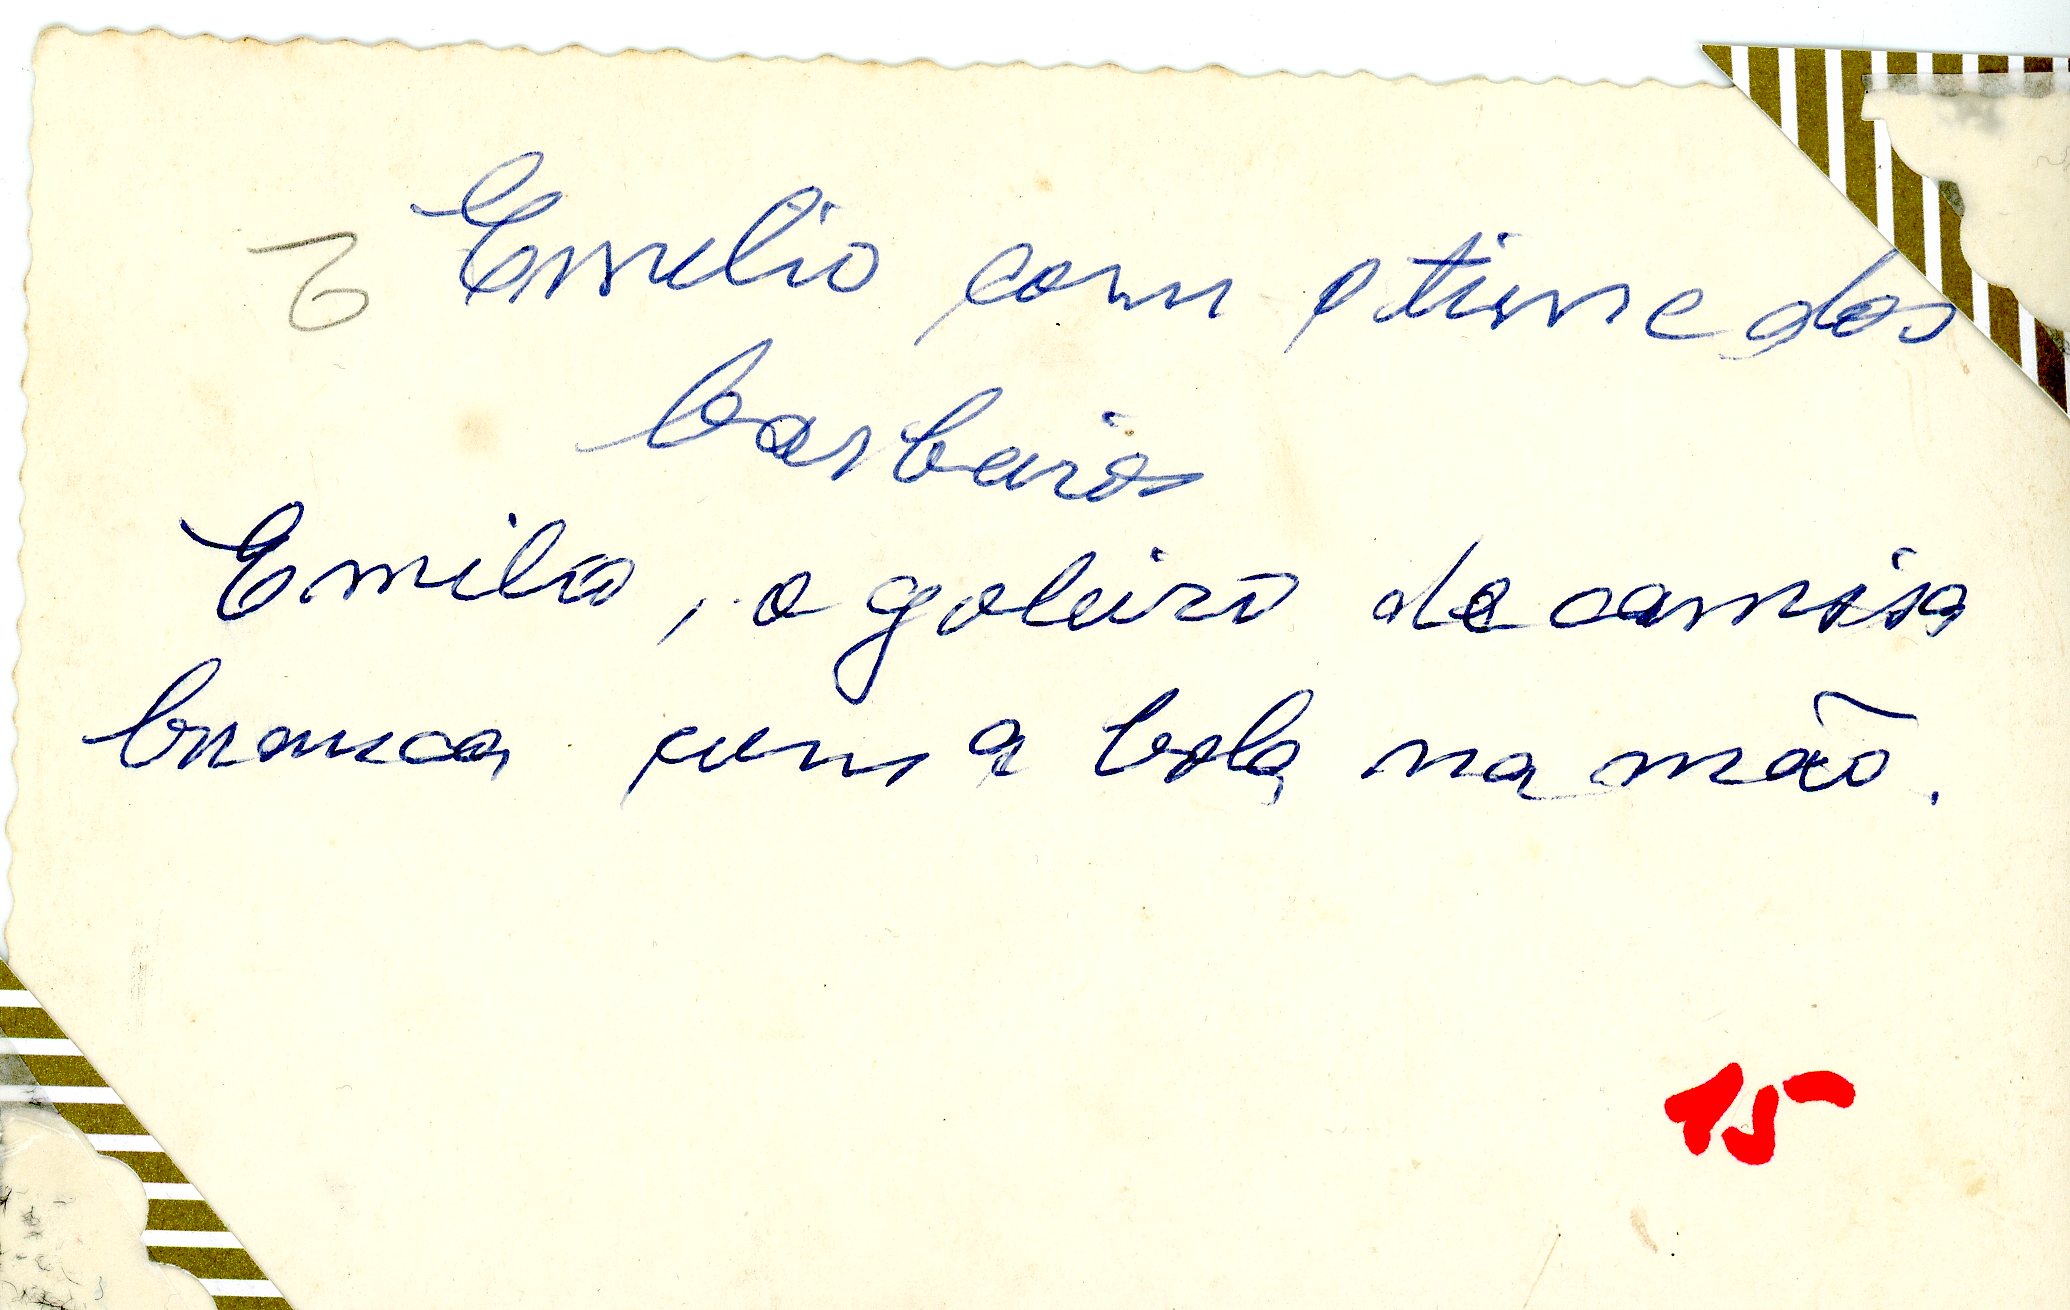 6 Emilio com o time dos
barbeiros
Emilio, o goleiro de camisa
branca com a bola na mão.
15